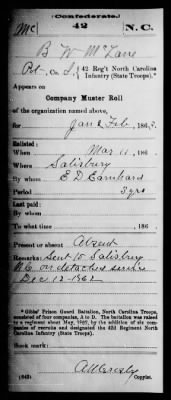 (Confederate.)
Mc 42 N.C.
B W McLure
Pvt, Co. I, 42 Reg't North Carolina
Infantry (State Troops).*
Appears on
Company Muster Roll
of the organization named above,
for Jan & Feb, 1863.
Enlisted:
When Mar 11, 186
Where Salisbury
By whom E D Earnhard
Period 3 yrs
Last paid:
By whom
To what time , 186
Present or absent Absent
Remarks: Sent to Salisbury
N.C. on detached service
Dec 12-1862
*Gibbs' Prison Guard Battalion, North Carolina Troops,
consisted of four companies, A to D. The battalion was raised
to a regiment about May, 1862, by the addition of six com-
panies of recruits and designated the 42d Regiment North
Carolina Infantry (State Troops).
Book mark:
(642)
Copyist.